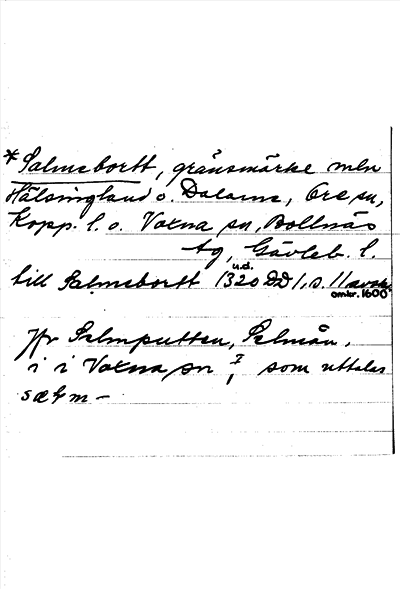 *Salmebortt, gränsmärke mln
Hälsingland o. Dalarne, Ore sn,
Kopp. l. o. Voxna sn, Bollnäs
tg, Gävleb. l.
till Salmsbortt 1320 u.d. DD 1, s. 11 avskr. omkr. 1600
Jfr Salmputten, Salmån,
i i Voxna sn I, som uttalas
sælm–